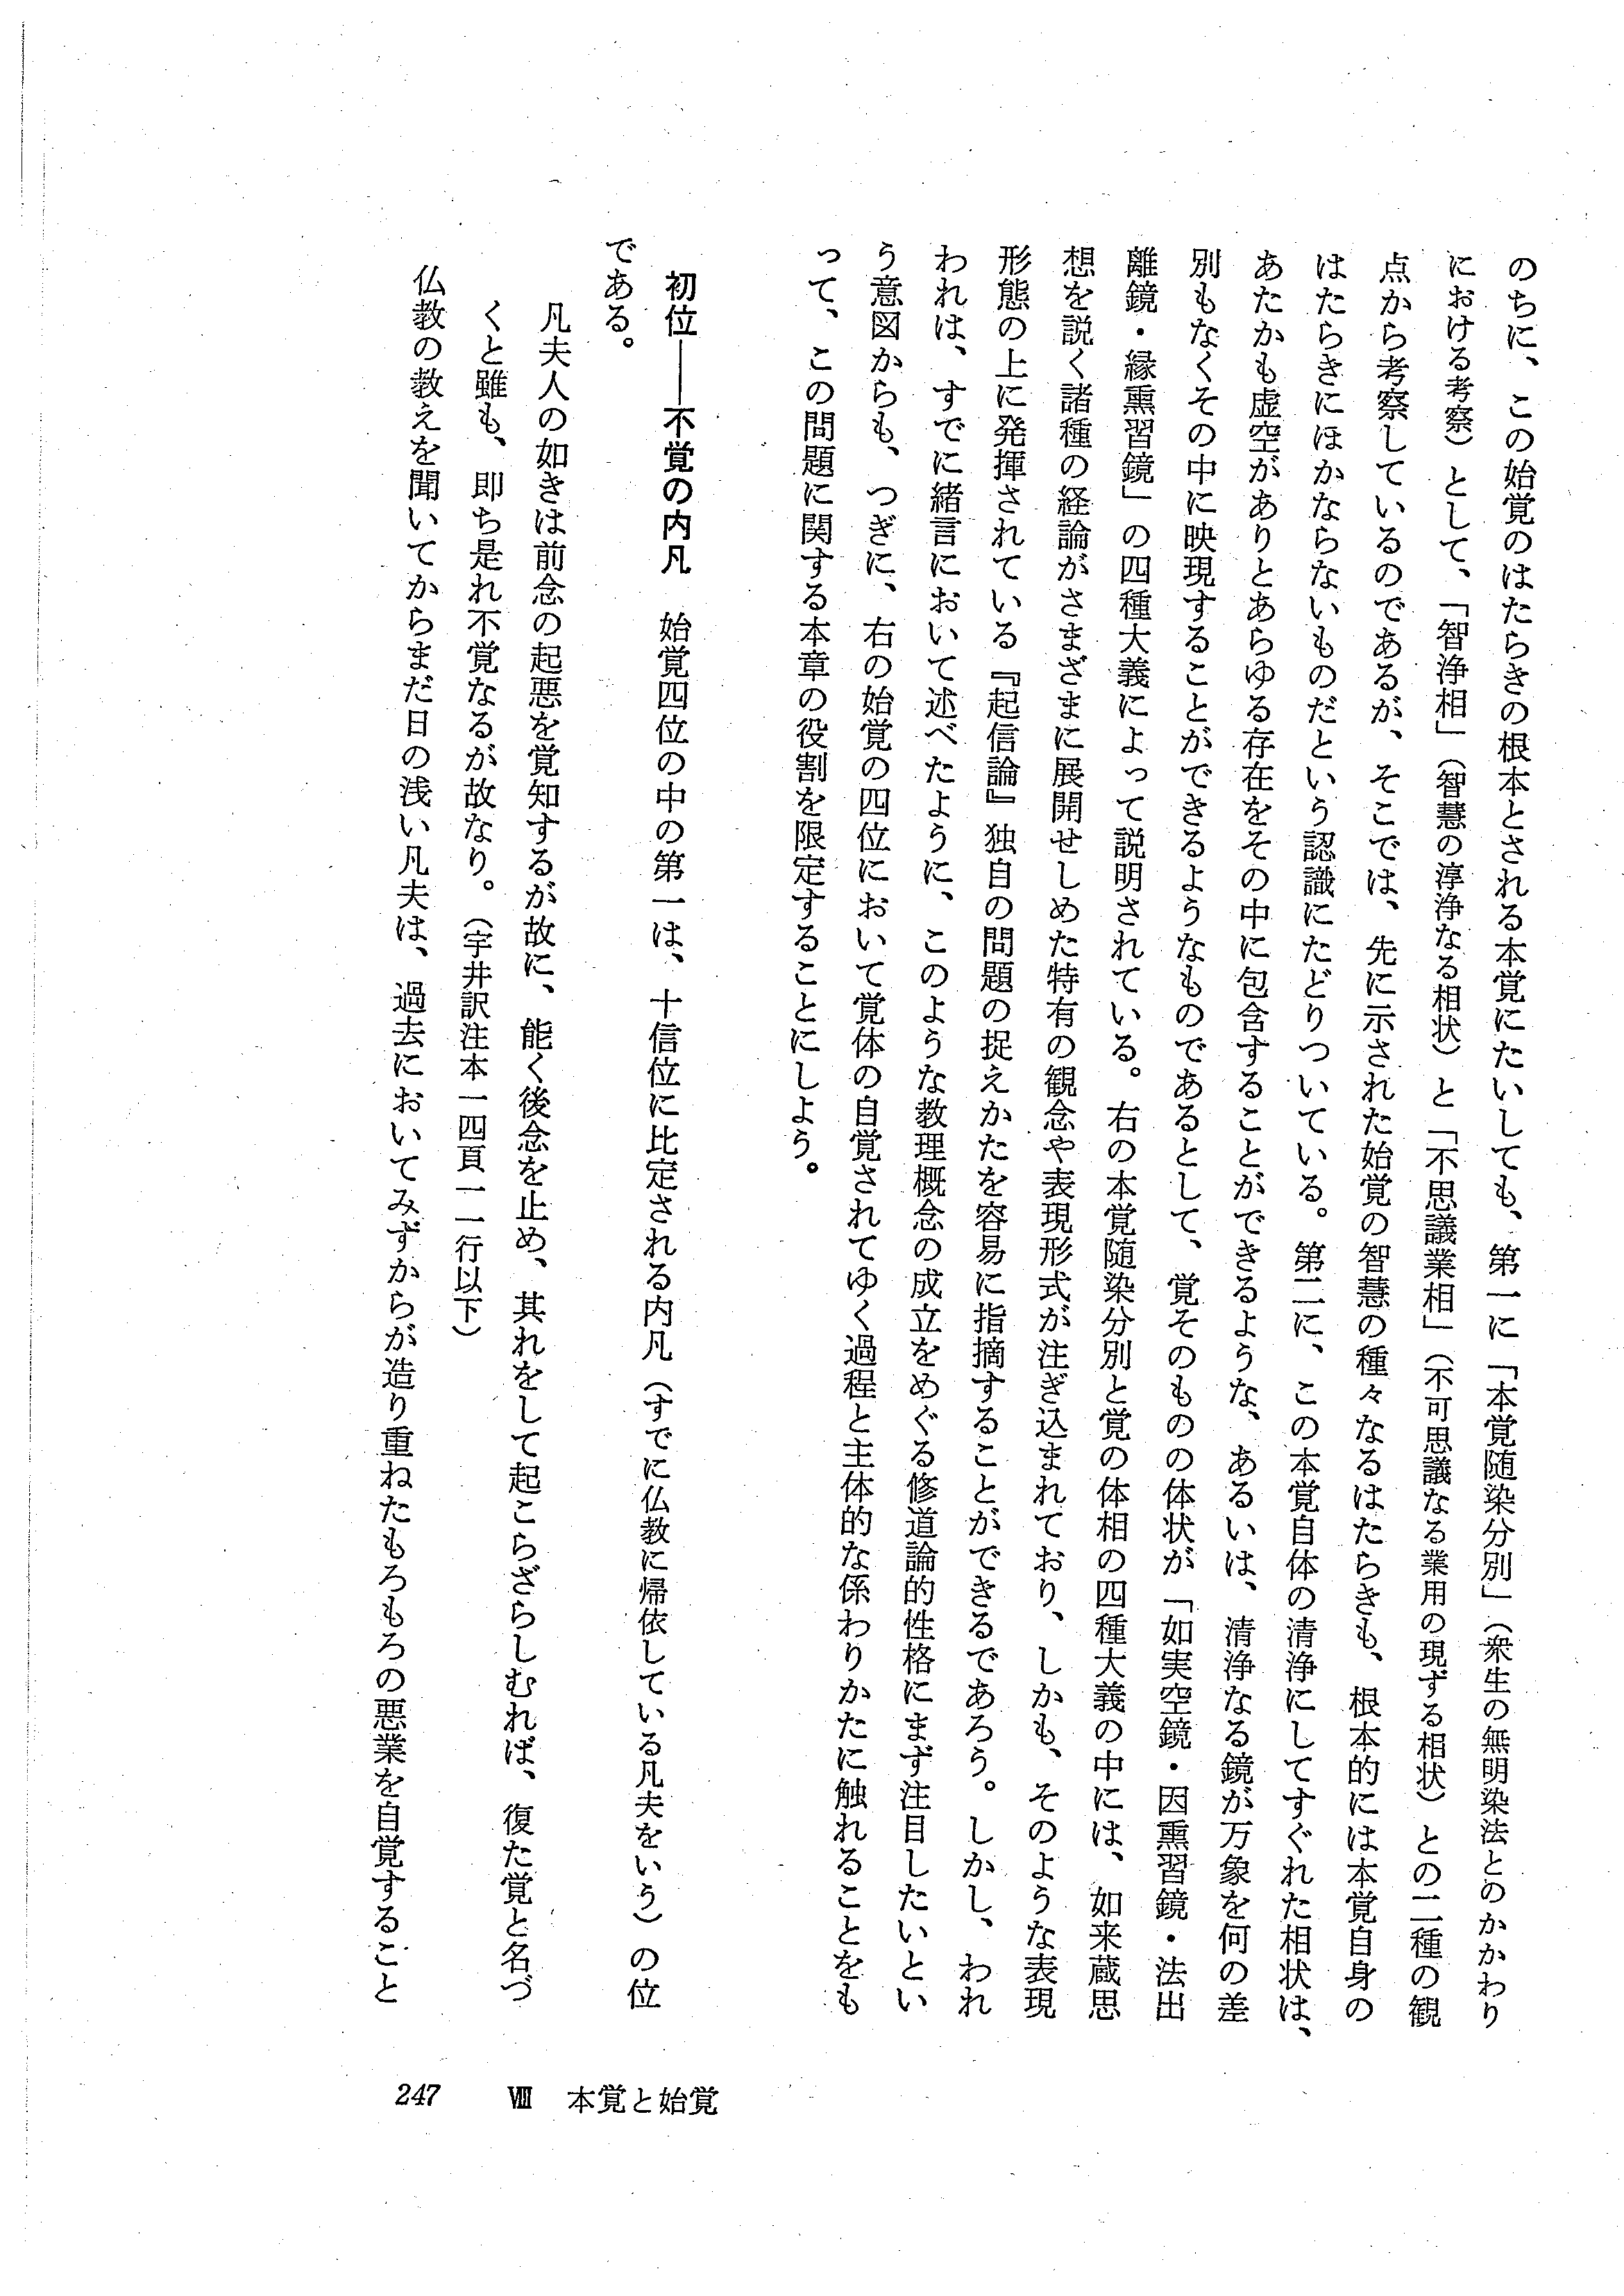 のちに、この始覚のはたらきの根本とされる本覚にたいしても、第一に「本覚随染分別」（衆生の無明染法とのかかわり
における考察）として、「智浄相」（智慧の淳浄なる相状）と「不思議業相」（不可思議なる業用の現ずる相状）との二種の観
点から考察しているのであるが、そこでは、先に示された始覚の智慧の種々なるはたらきも、根本的には本覚自身の
はたらきにほかならないものだという認識にたどりついている。第二に、この本覚自体の清浄にしてすぐれた相状は、
あたかも虚空がありとあらゆる存在をその中に包含することができるような、あるいは、清浄なる鏡が万象を何の差
別もなくその中に映現することができるようなものであるとして、覚そのものの体状が「如実空鏡・因熏習鏡・法出
離鏡・縁熏習鏡」の四種大義によって説明されている。右の本覚随染分別と覚の体相の四種大義の中には、如来蔵思
想を説く諸種の経論がさまざまに展開せしめた特有の観念や表現形式が注ぎ込まれており、しかも、そのような表現
形態の上に発揮されている『起信論』独自の問題の捉えかたを容易に指摘することができるであろう。しかし、われ
われは、すでに緒言において述べたように、このような教理概念の成立をめぐる修道論的性格にまず注目したいとい
う意図からも、つぎに、右の始覚の四位において覚体の自覚されてゆく過程と主体的な係わりかたに触れることをも
って、この問題に関する本章の役割を限定することにしよう。
初位――不覚の内凡　始覚四位の中の第一は、十信位に比定される内凡（すでに仏教に帰依している凡夫をいう）の位
である。
凡夫人の如きは前念の起悪を覚知するが故に、能く後念を止め、其れをして起こらざらしむれば、復た覚と名づ
くと雖も、即ち是れ不覚なるが故なり。（宇井訳注本一四頁一一行以下）
仏教の教えを聞いてからまだ日の浅い凡夫は、過去においてみずからが造り重ねたもろもろの悪業を自覚すること
247　Ⅷ　本覚と始覚